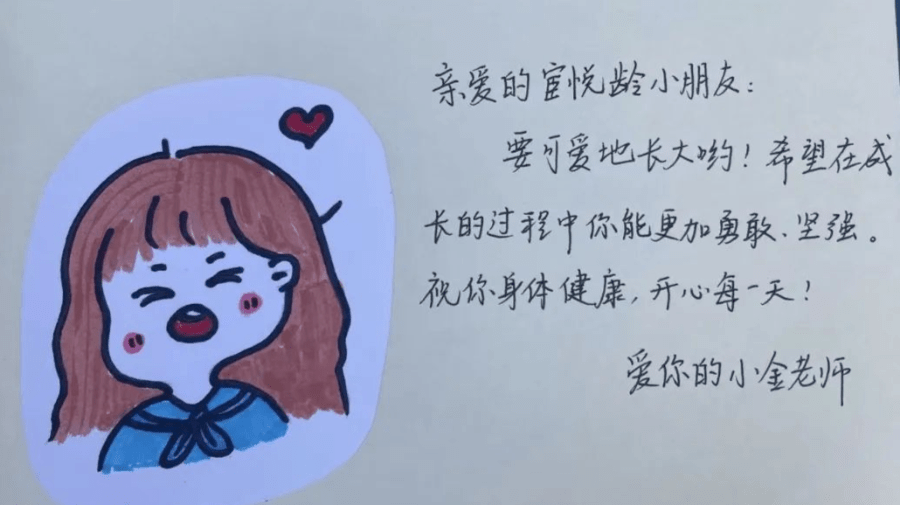 亲爱的宦悦龄小朋友：
要可爱地长大哟！希望在成
长的过程中你能更加勇敢、坚强。
祝你身体健康，开心每一天！
爱你的小金老师